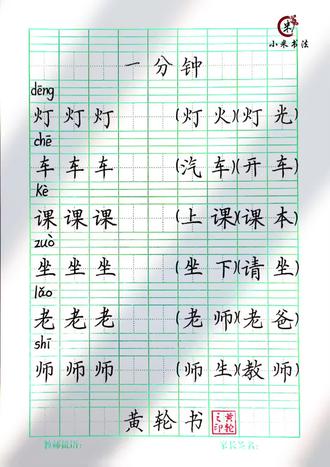 小米书法
一分钟
dēng
灯 灯 灯 (灯 火)(灯 光)
chē
车 车 车 (汽 车)(开 车)
kè
课 课 课 (上 课)(课 本)
zuò
坐 坐 坐 (坐 下)(请 坐)
lǎo
老 老 老 (老 师)(老 爸)
shī
师 师 师 (师 生)(教 师)
黄轮书
黄轮之印
教师激语: 家长签名: